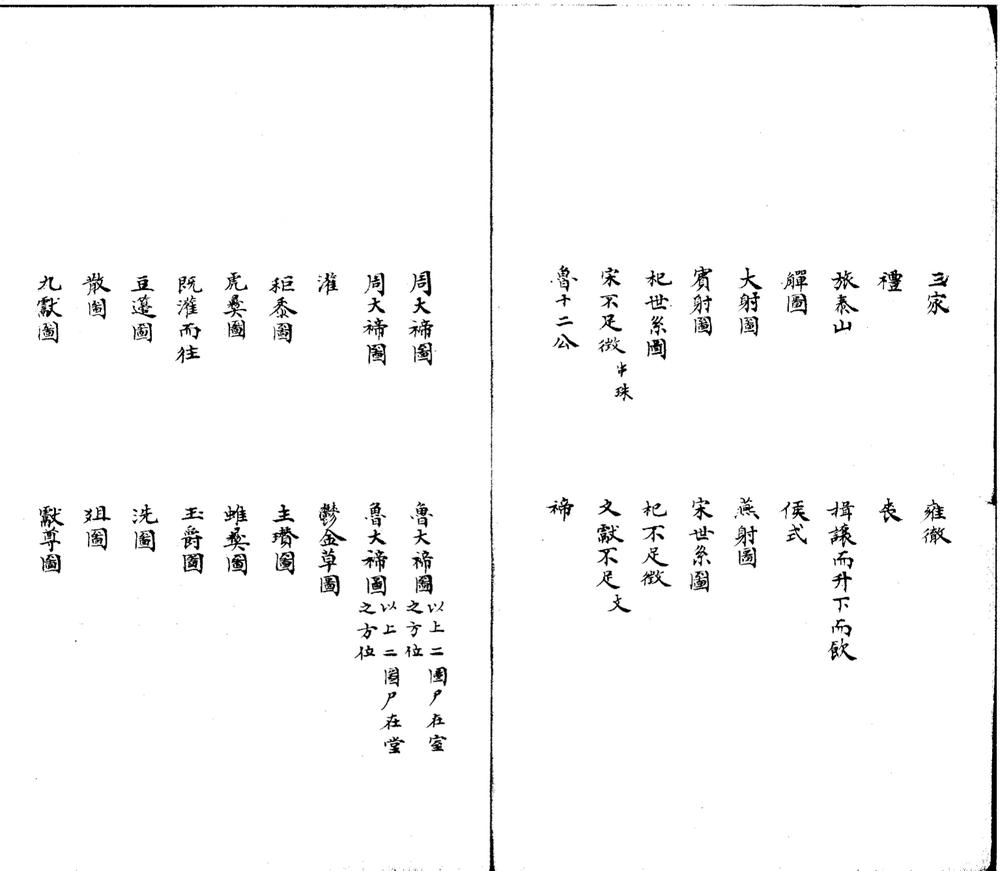 三家
雍徹
禮
喪
旅泰山
揖讓而升下而飲
觶圖
侯式
大射圖
燕射圖
賓射圖
宋世系圖
杞世系圖
杞不足徵
宋不足徵 串珠
文獻不足 文
魯十二公
禘
周大禘圖
魯大禘圖 以上二圖尸在室之方位
周大禘圖
魯大禘圖 以上二圖尸在堂之方位
灌
鬱金草圖
秬黍圖
圭瓚圖
虎彝圖
蜼彝圖
既灌而往
玉爵圖
豆籩圖
洗圖
散圖
俎圖
九獻圖
獻尊圖